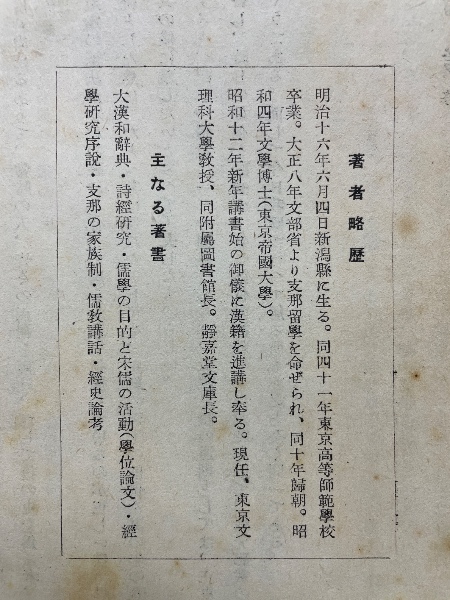 著者略歷
明治十六年六月四日新潟縣に生る。同四十一年東京高等師範學校
卒業。大正八年文部省より支那留學を命ぜられ、同十年歸朝。昭
和四年文學博士(東京帝國大學)。
昭和十二年新年講書始の御儀に漢籍を進講し奉る。現任、東京文
理科大學敎授、同附屬圖書館長。靜嘉堂文庫長。
主なる著書
大漢和辭典・詩經硏究・儒學の目的と宋儒の活動(學位論文)・經
學硏究序說・支那の家族制・儒敎講話・經史論考